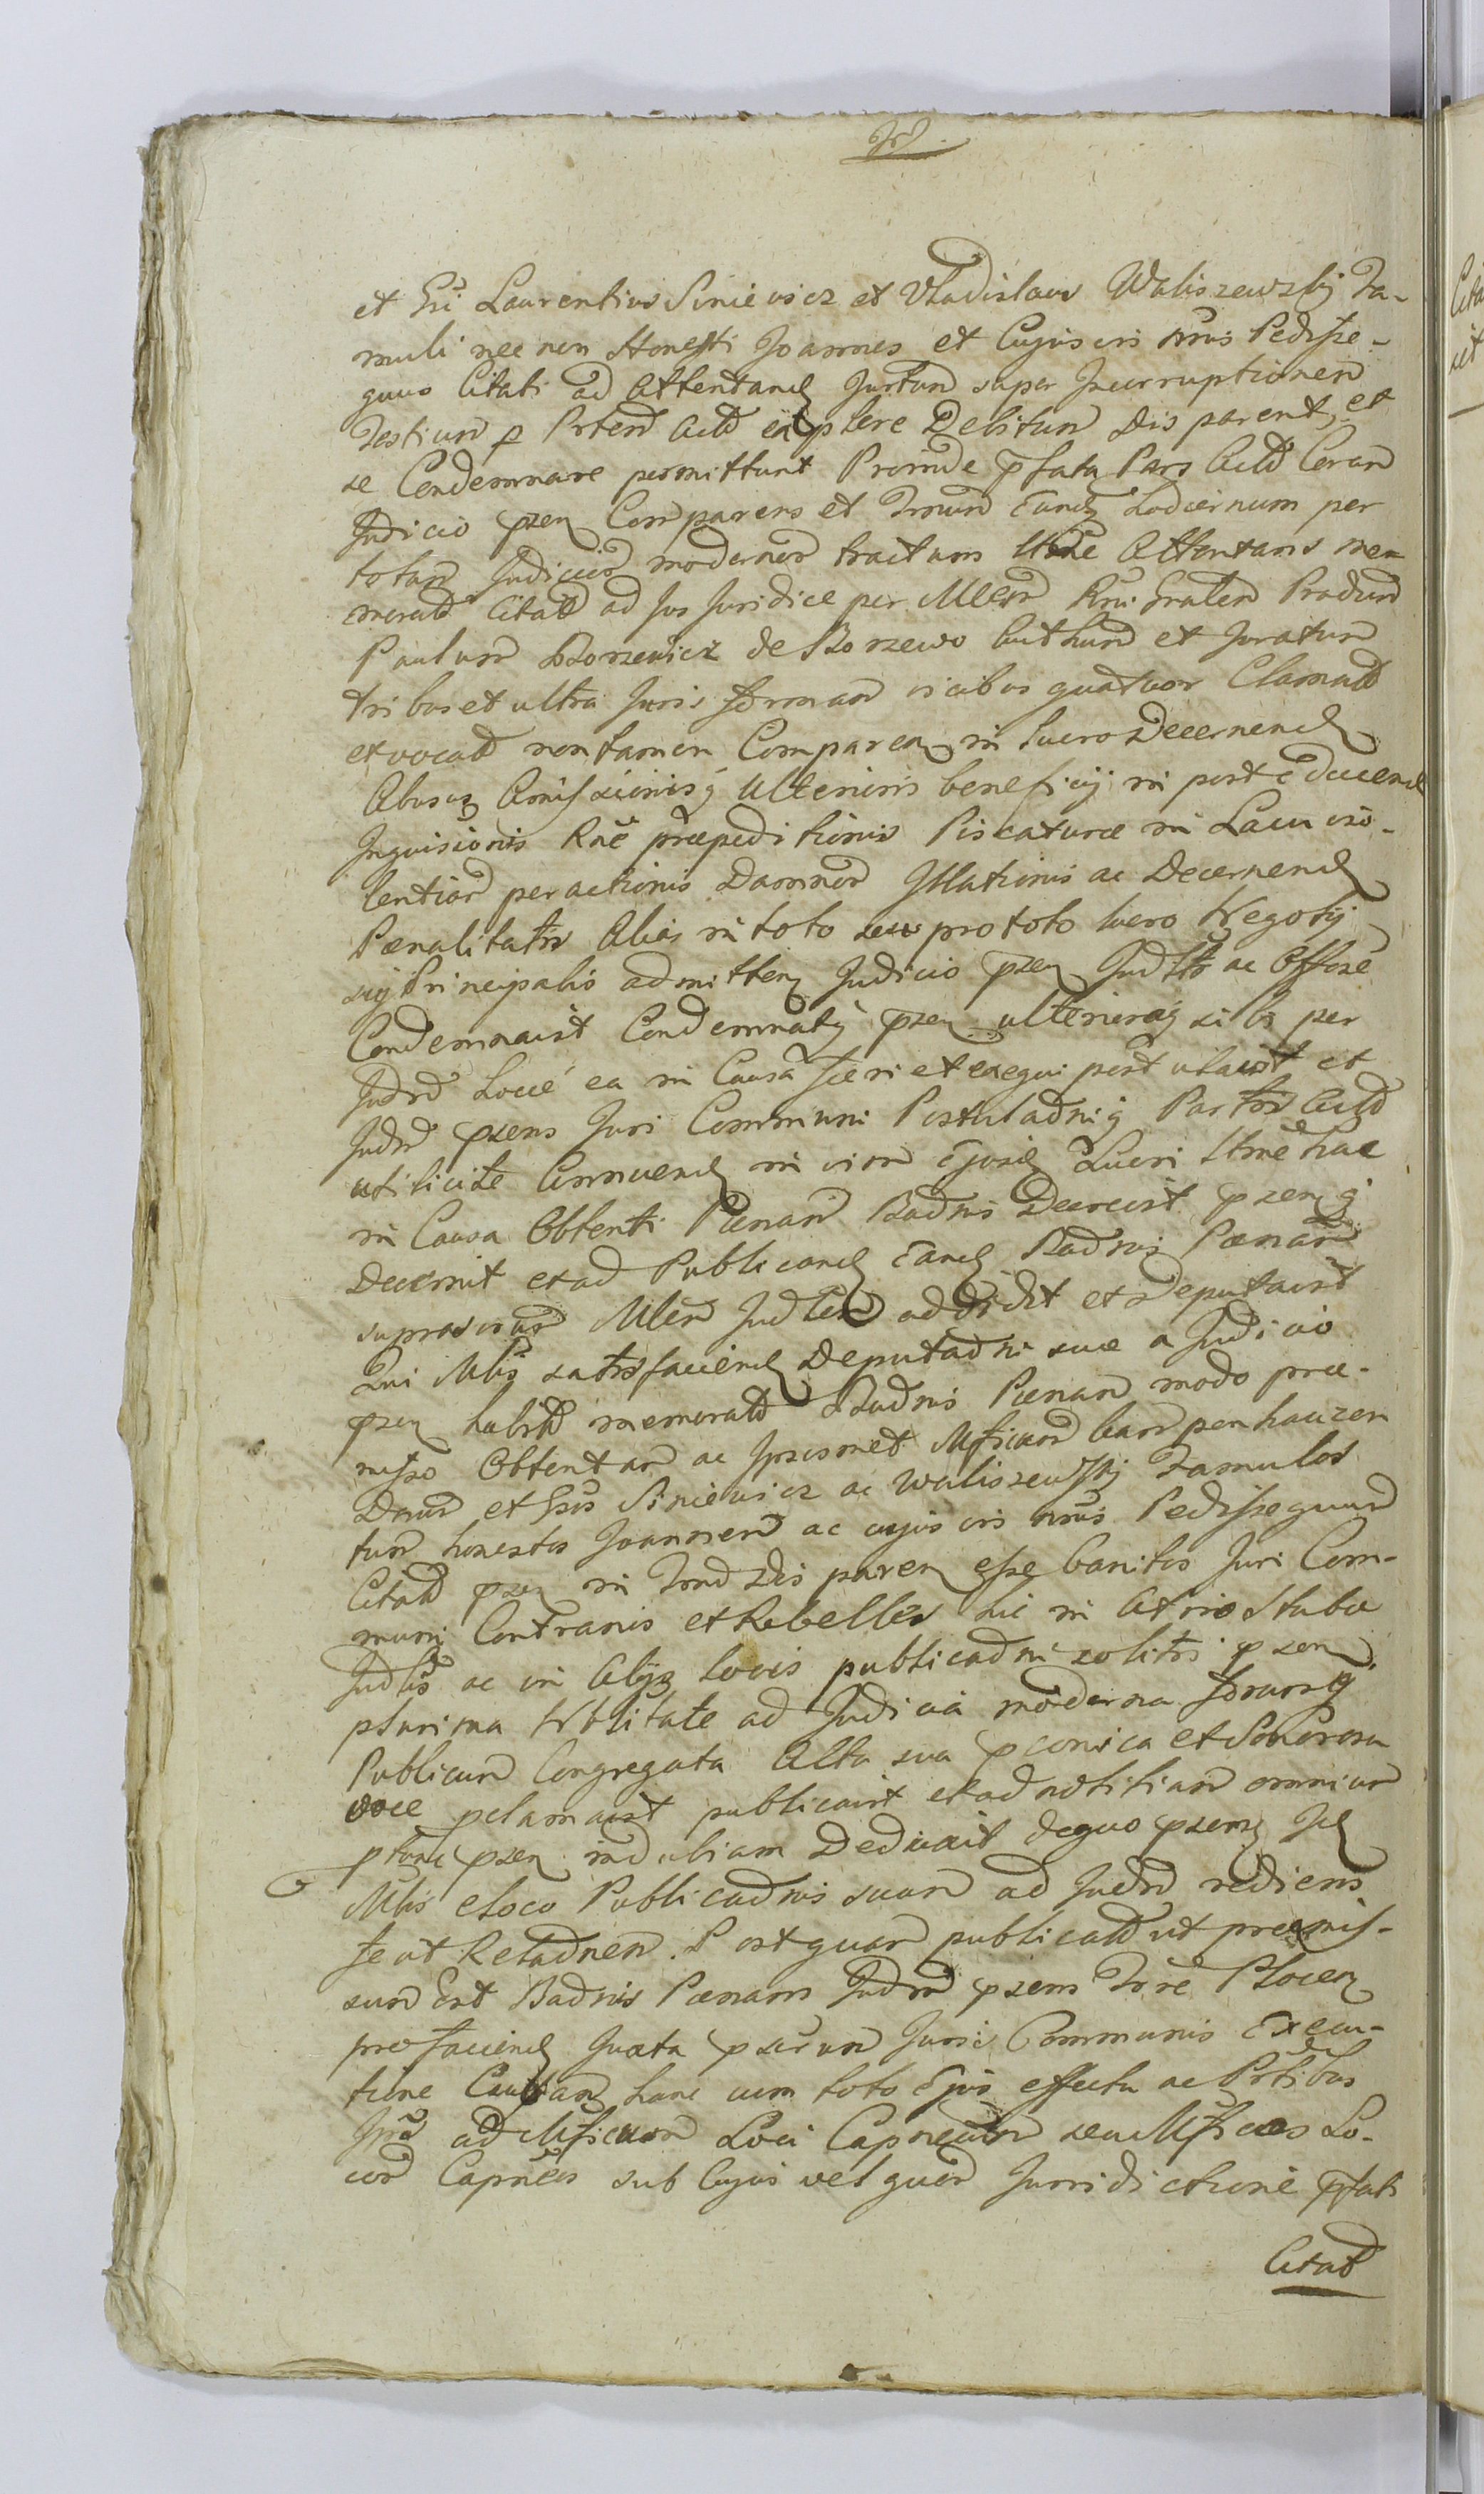 et Gsi Laurentius Siniewicz et Vladislaus Waliszewskÿ Fa-
muli nec non Honesti Joannes et Cujusvis nris Pedisse-
quus Citati ad Attentand Juxtum super Incorruptionem
Testium p Prtem Actd explere Debitum Dis parent, et
se Condemnare permittunt Proinde pfata Pars Actd Coram
Judicio psen Comparens et Tmum Eund hodiernum per
totum Judiciord modernor tractum Attentans me-
moratd Citatd ad Jus Juridice per Mlem Rni Gnalem Prodnd
Paulum Borzewicz de Borzewo Authum et Juratum
tribus et ultra Juris formam vicibus quatuor Clamatd
et vocatd non tamen Comparen in lucro Decernend
Abusus Amissionisq Ulterioris beneficij in post educend
Inquisionis Rne præpeditionis Piscaturæ in Lacu vio-
lentiar peractionis Damnor Illationis ac Decernend
Pænalitatis Alias in toto seu pro toto lucro Negotÿ
sui Principalis admitten Judicio psen Judltr ac Offose
Condemnavit Condemnatq psen ulterioraq sibi per
Judm Locü ea in Causa fieri et exequi postulavit et
Judm psens Juri Communi Postuladniq Partis Actd
utilicite Annuend in vim Ejusd Lucri Hme hac
in Causa Obtenti Pænam Badnis Decrevit psenq
Decernit et ad Publicand Eand Badnis Pænam
suprascrum Mlem Judlem addidit et Deputavit
Qui Mlis satisfaciend Deputadni suæ a Judicio
psen habitd memoratd Badnis Pænam modo præ-
misso Obtentam ac Ipsosmet Mficum Campenhauzen
Dnum et Gsos Siniewicz ac Waliszewskÿ Famulos
tum honestos Joannem ac cujusvis nris Pedissequum
Citatd psen in Tmo Dis paren esse banitos Juri Com-
muni Contrarios et Rebelles hic in Atrio Stubæ
Judlis ac in Alÿs locis publicadni solitis psen
plurima Nblitate ad Judicia moderna forumq
Publicum Congregata Alta sua pconica et Sonorosa
voce pclamavit publicavit et ad notitiam omnium
ptunc psen indubiam Deduxit dequo psens Id
Mlis e loco Publicadnis suam ad Judm rediens
fecit Reladnem. Postquam publicatd ut præmis-
sum Est Badnis Pænam Judm psens Tre Plocen
pro faciend Juxta pscrum Juris Communis Execu-
tione Causam hanc cum toto Ejus effectu ac Prtibus
Ipsd ad Mficum Loci Capneum seu Mficos Lo-
cor Capneos sub Cujus vel quor Jurisdictione pfati
Citatd